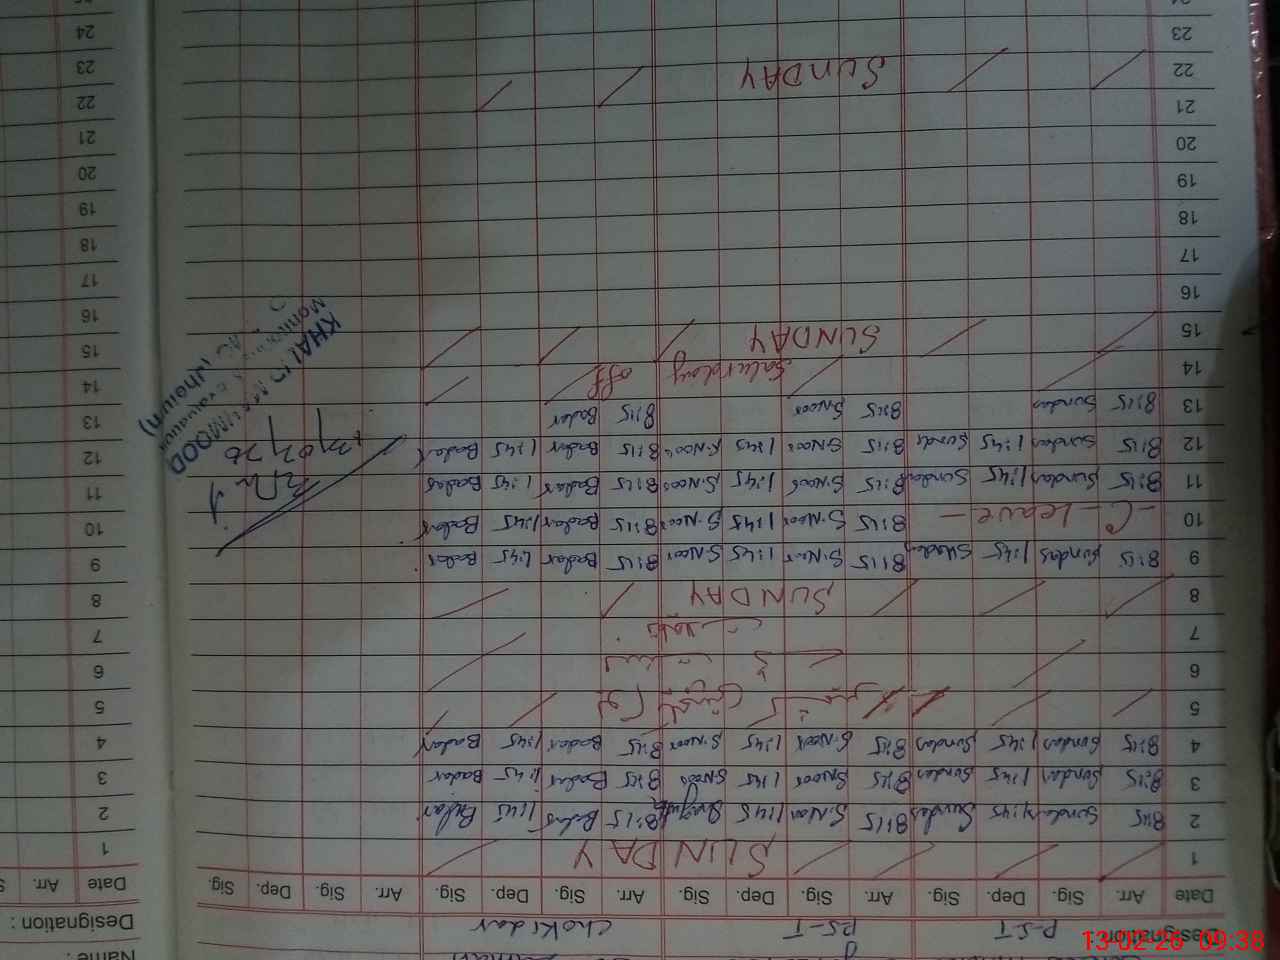 Designation P-S-T PS-T Chokidar
Date Arr. Sig. Dep. Sig. Arr. Sig. Dep. Sig. Arr. Sig. Dep. Sig. Arr. Sig. Dep. Sig.
1 SUNDAY
2 8:15 Sundas 1:45 Sundas 8:15 S.Noor 1:45 8:15 Badar 1:45 Badar
3 8:15 Sundas 1:45 Sundas 8:15 S.Noor 1:45 S.Noor 8:15 Badar 1:45 Badar
4 8:15 Sundas 1:45 Sundas 8:15 S.Noor 1:45 S.Noor 8:15 Badar 1:45 Badar
5
6
7
8 SUNDAY
9 8:15 Sundas 1:45 Sundas 8:15 S.Noor 1:45 S.Noor 8:15 Badar 1:45 Badar
10 - C - Leave - 8:15 S.Noor 1:45 S.Noor 8:15 Badar 1:45 Badar
11 8:15 Sundas 1:45 Sundas 8:15 S.Noor 1:45 S.Noor 8:15 Badar 1:45 Badar
12 8:15 Sundas 1:45 Sundas 8:15 S.Noor 1:45 S.Noor 8:15 Badar 1:45 Badar
13 8:15 Sundas 8:15 S.Noor 8:15 Badar
14 Saturday off
15 SUNDAY
16
17
18
19
20
21
22 SUNDAY
23
KHALID MEHMOOD
Name :
Designation :
Date Arr.
1
2
3
4
5
6
7
8
9
10
11
12
13
14
15
16
17
18
19
20
21
22
23
24
13-02-26 09:38